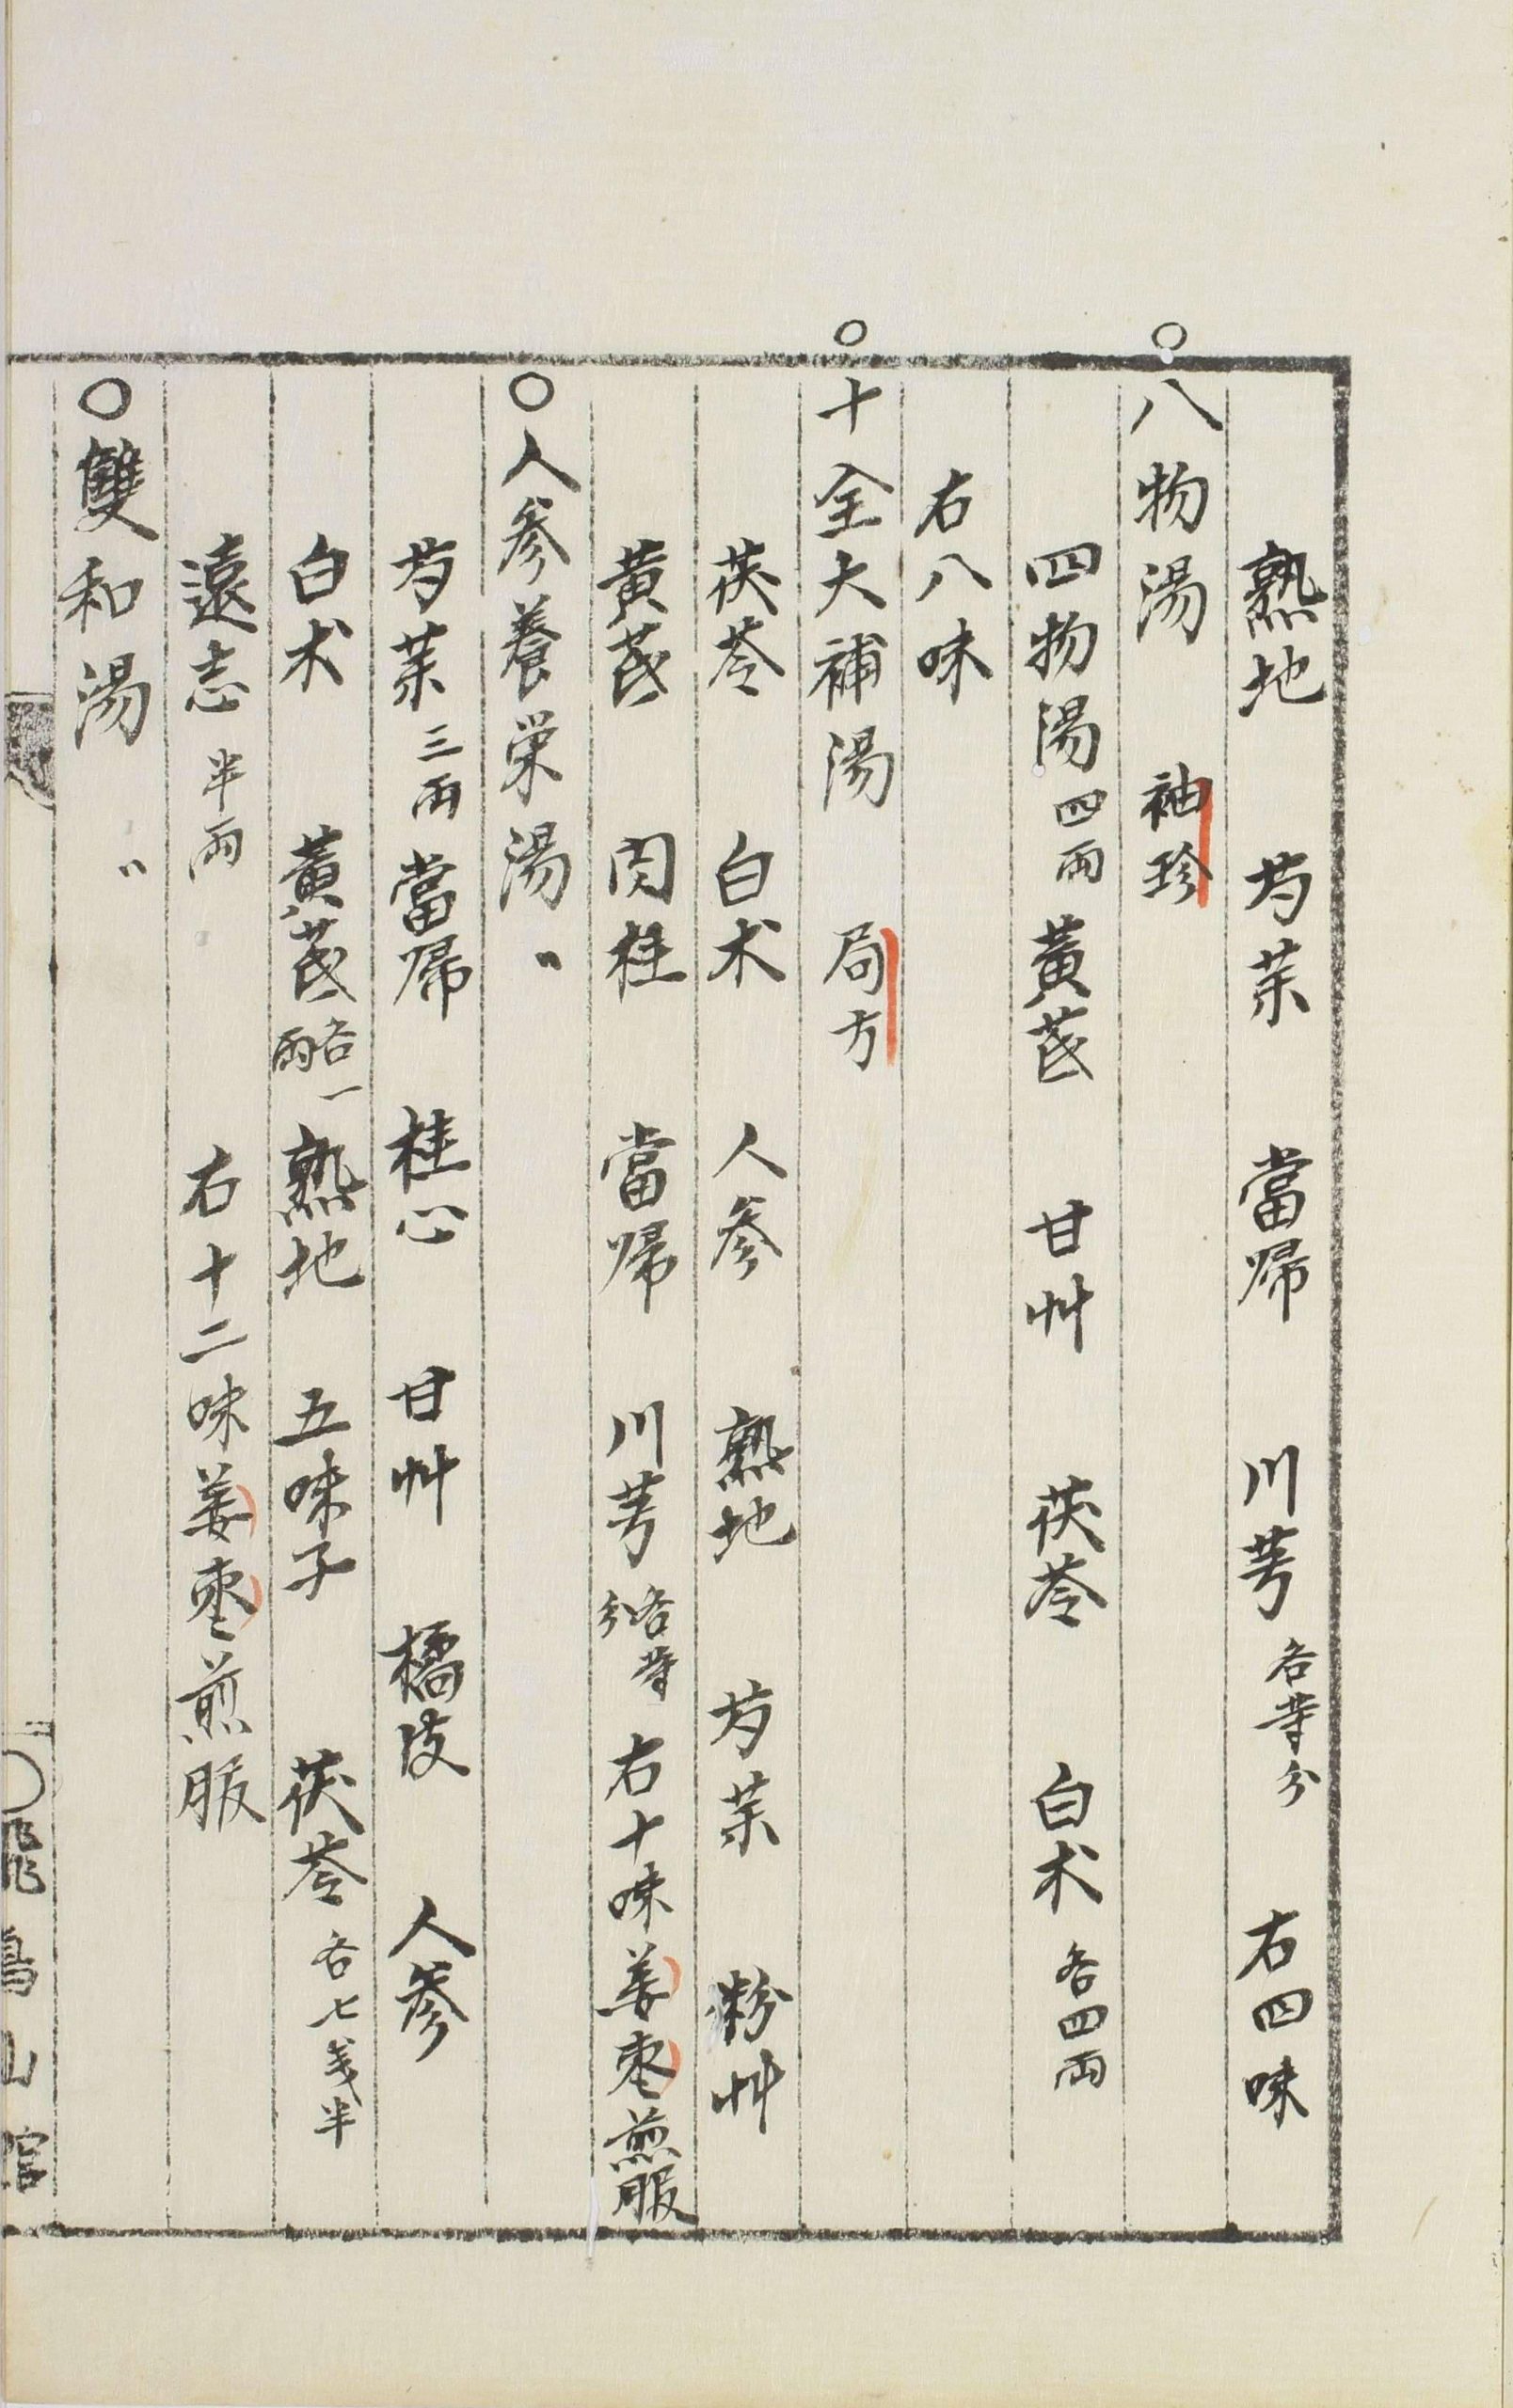 熟地 芍薬 當帰 川芎 各等分 右四味
○八物湯 袖珍
四物湯 四兩 黄芪 甘艸 茯苓 白朮 各四兩
右八味
○十全大補湯 局方
茯苓 白朮 人参 熟地 芍薬 粉艸
黄芪 肉桂 當帰 川芎 各等分 右十味姜枣煎服
○人参養栄湯 〃
芍薬 三兩 當帰 桂心 甘艸 橘皮 人参
白朮 黄芪 各一兩 熟地 五味子 茯苓 各七戔半
遠志 半兩 右十二味姜枣煎服
○雙和湯 〃
飛鳥山館